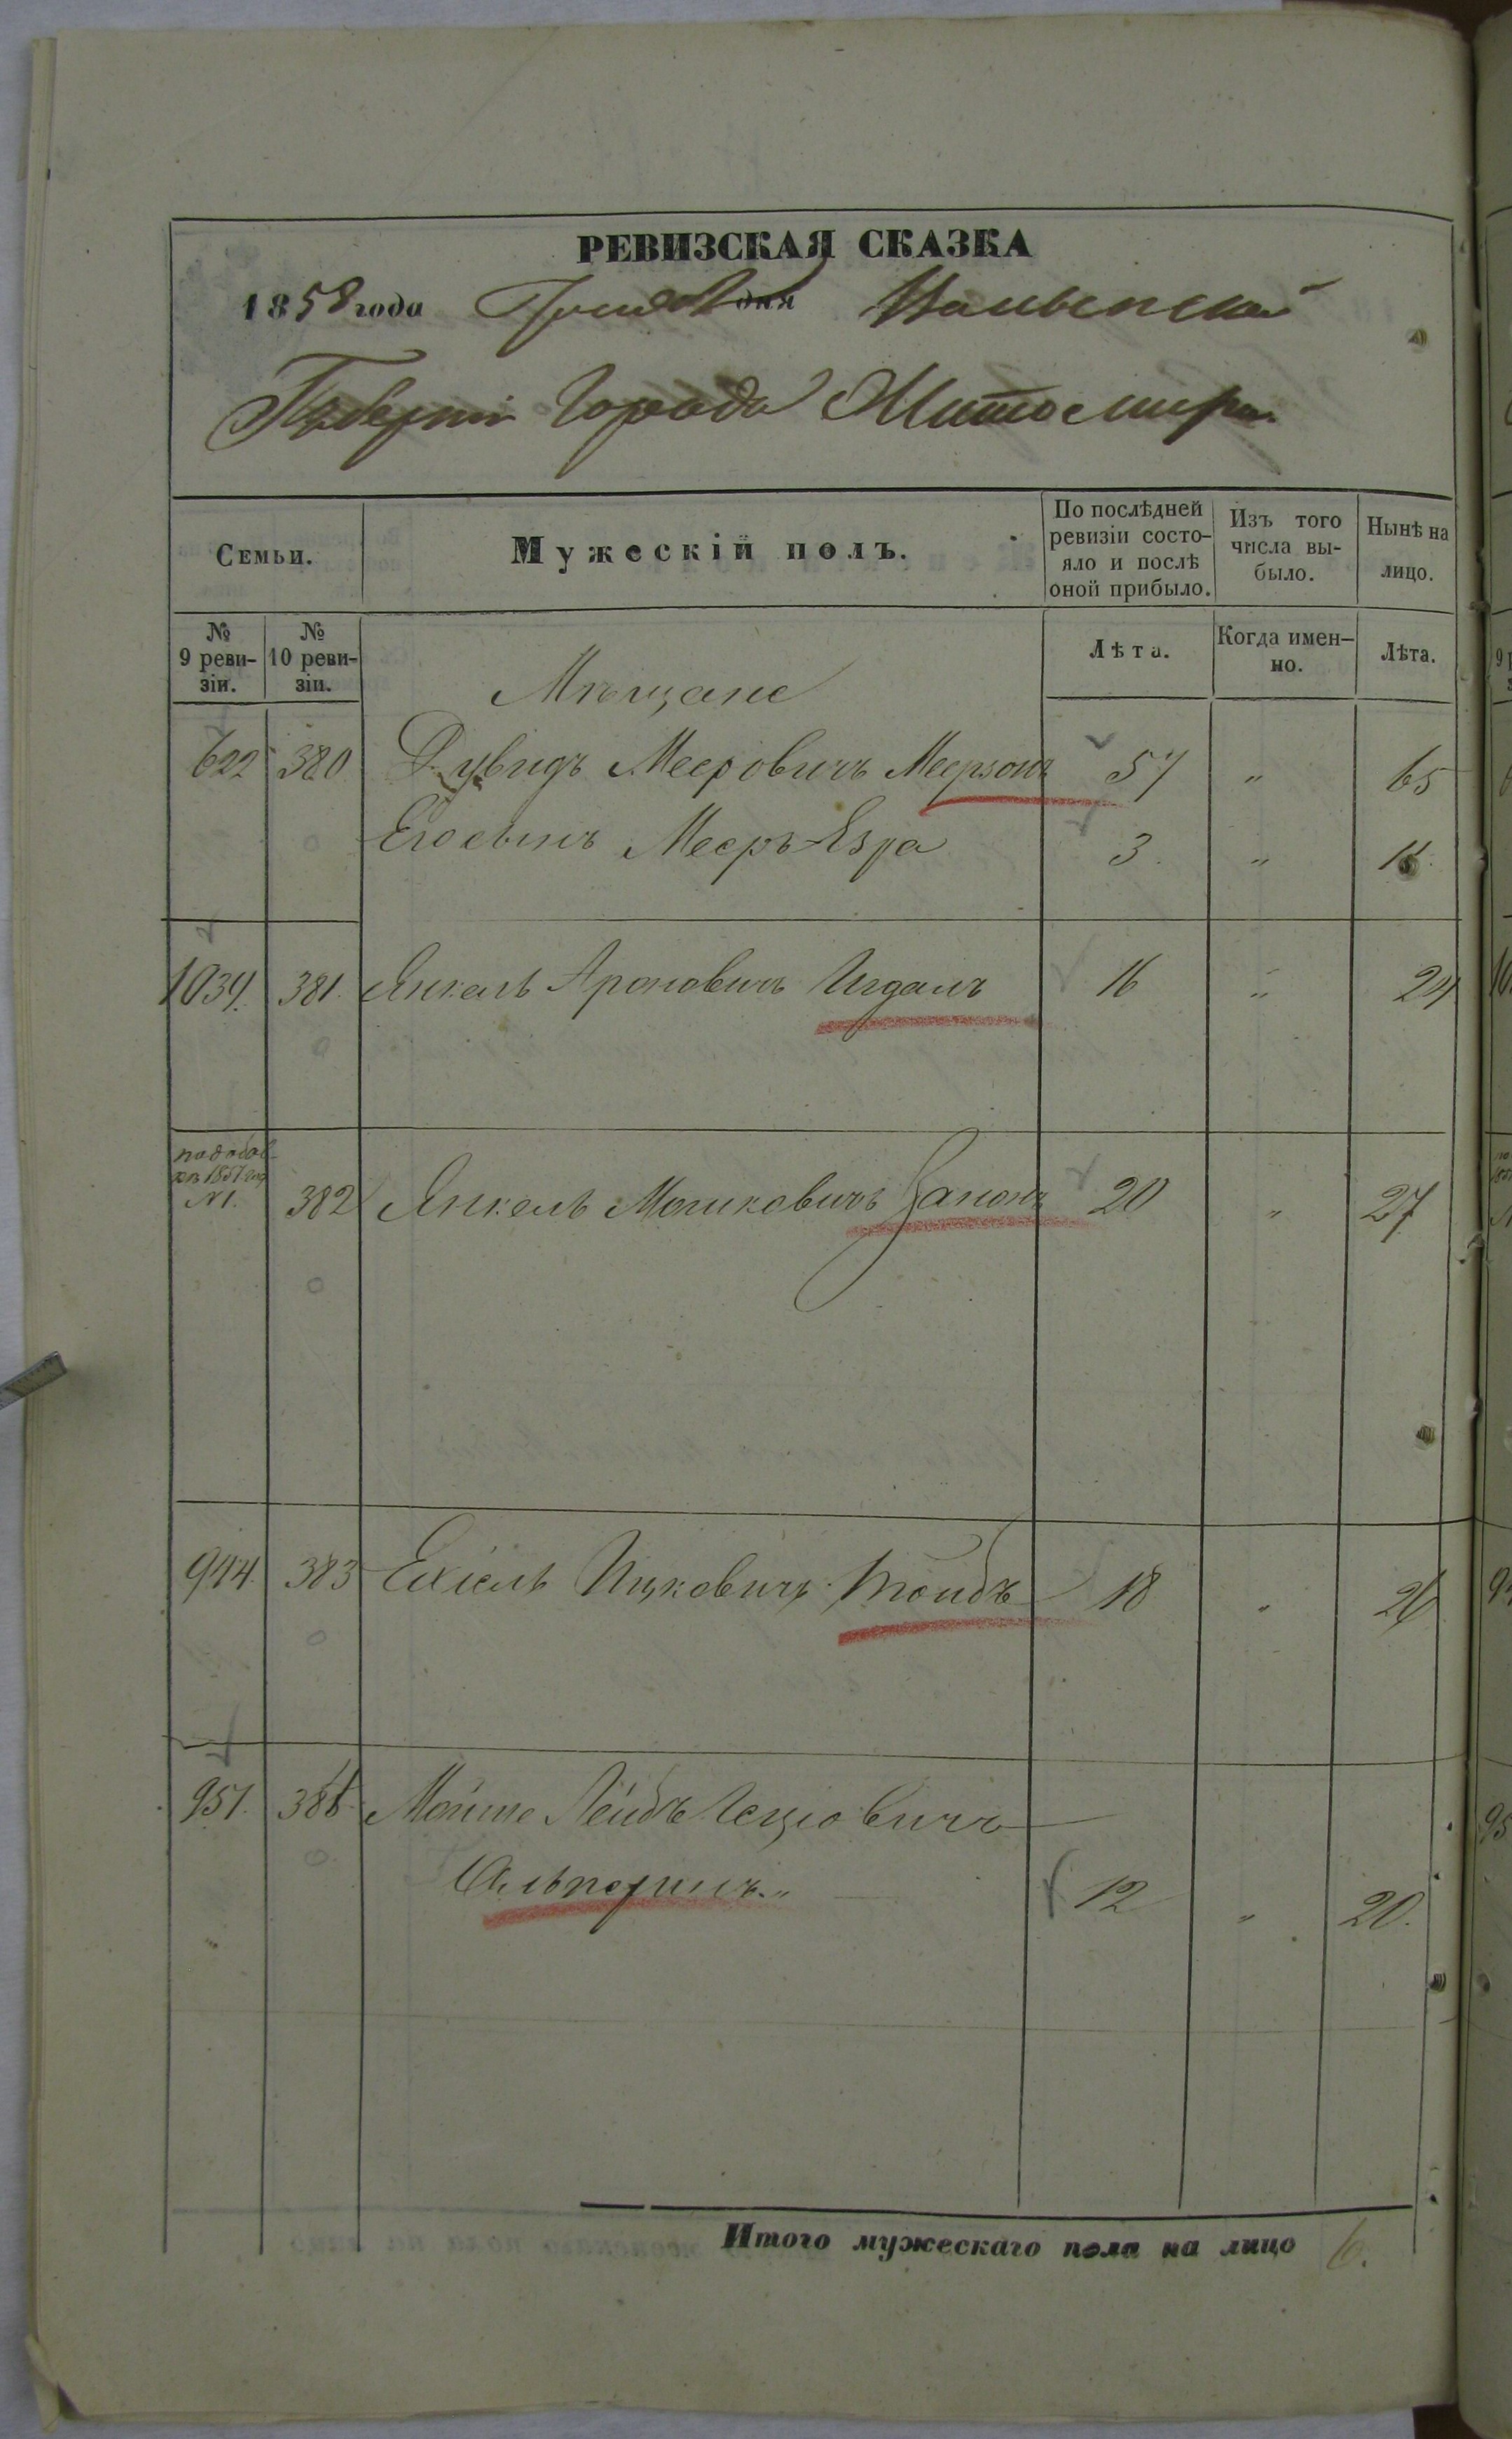 РЕВИЗСКАЯ СКАЗКА
1858 года дня Волынской
Губерніи Города Житомира
Семьи.
Мужескій полъ.
По послѣдней ревизіи состо-
яло и послѣ
оной прибыло.
Изъ того
числа вы-
было.
Нынѣ на
лицо.
№
9 реви-
зіи.
№
10 реви-
зіи.
Лѣта.
Когда имен-
но.
Лѣта.
Мѣщане
622 380 Дувидъ Мееровичъ Меерзонъ 57 „ 65
Его сынъ Мееръ Езра 3. „ 11.
1039. 381. Янкель Ароновичъ Игдалъ 16 „ 24
по добав-
къ 1851 год
N 1.
382 Янкель Мошковичъ 20 „ 27
944. 383 Ехіель Ицковичъ Тойбъ 18 „ 26
951. 384 Мойше Лейбъ
Альперинъ.„ 12 „ 20.
Итого мужескаго пола на лицо 6.